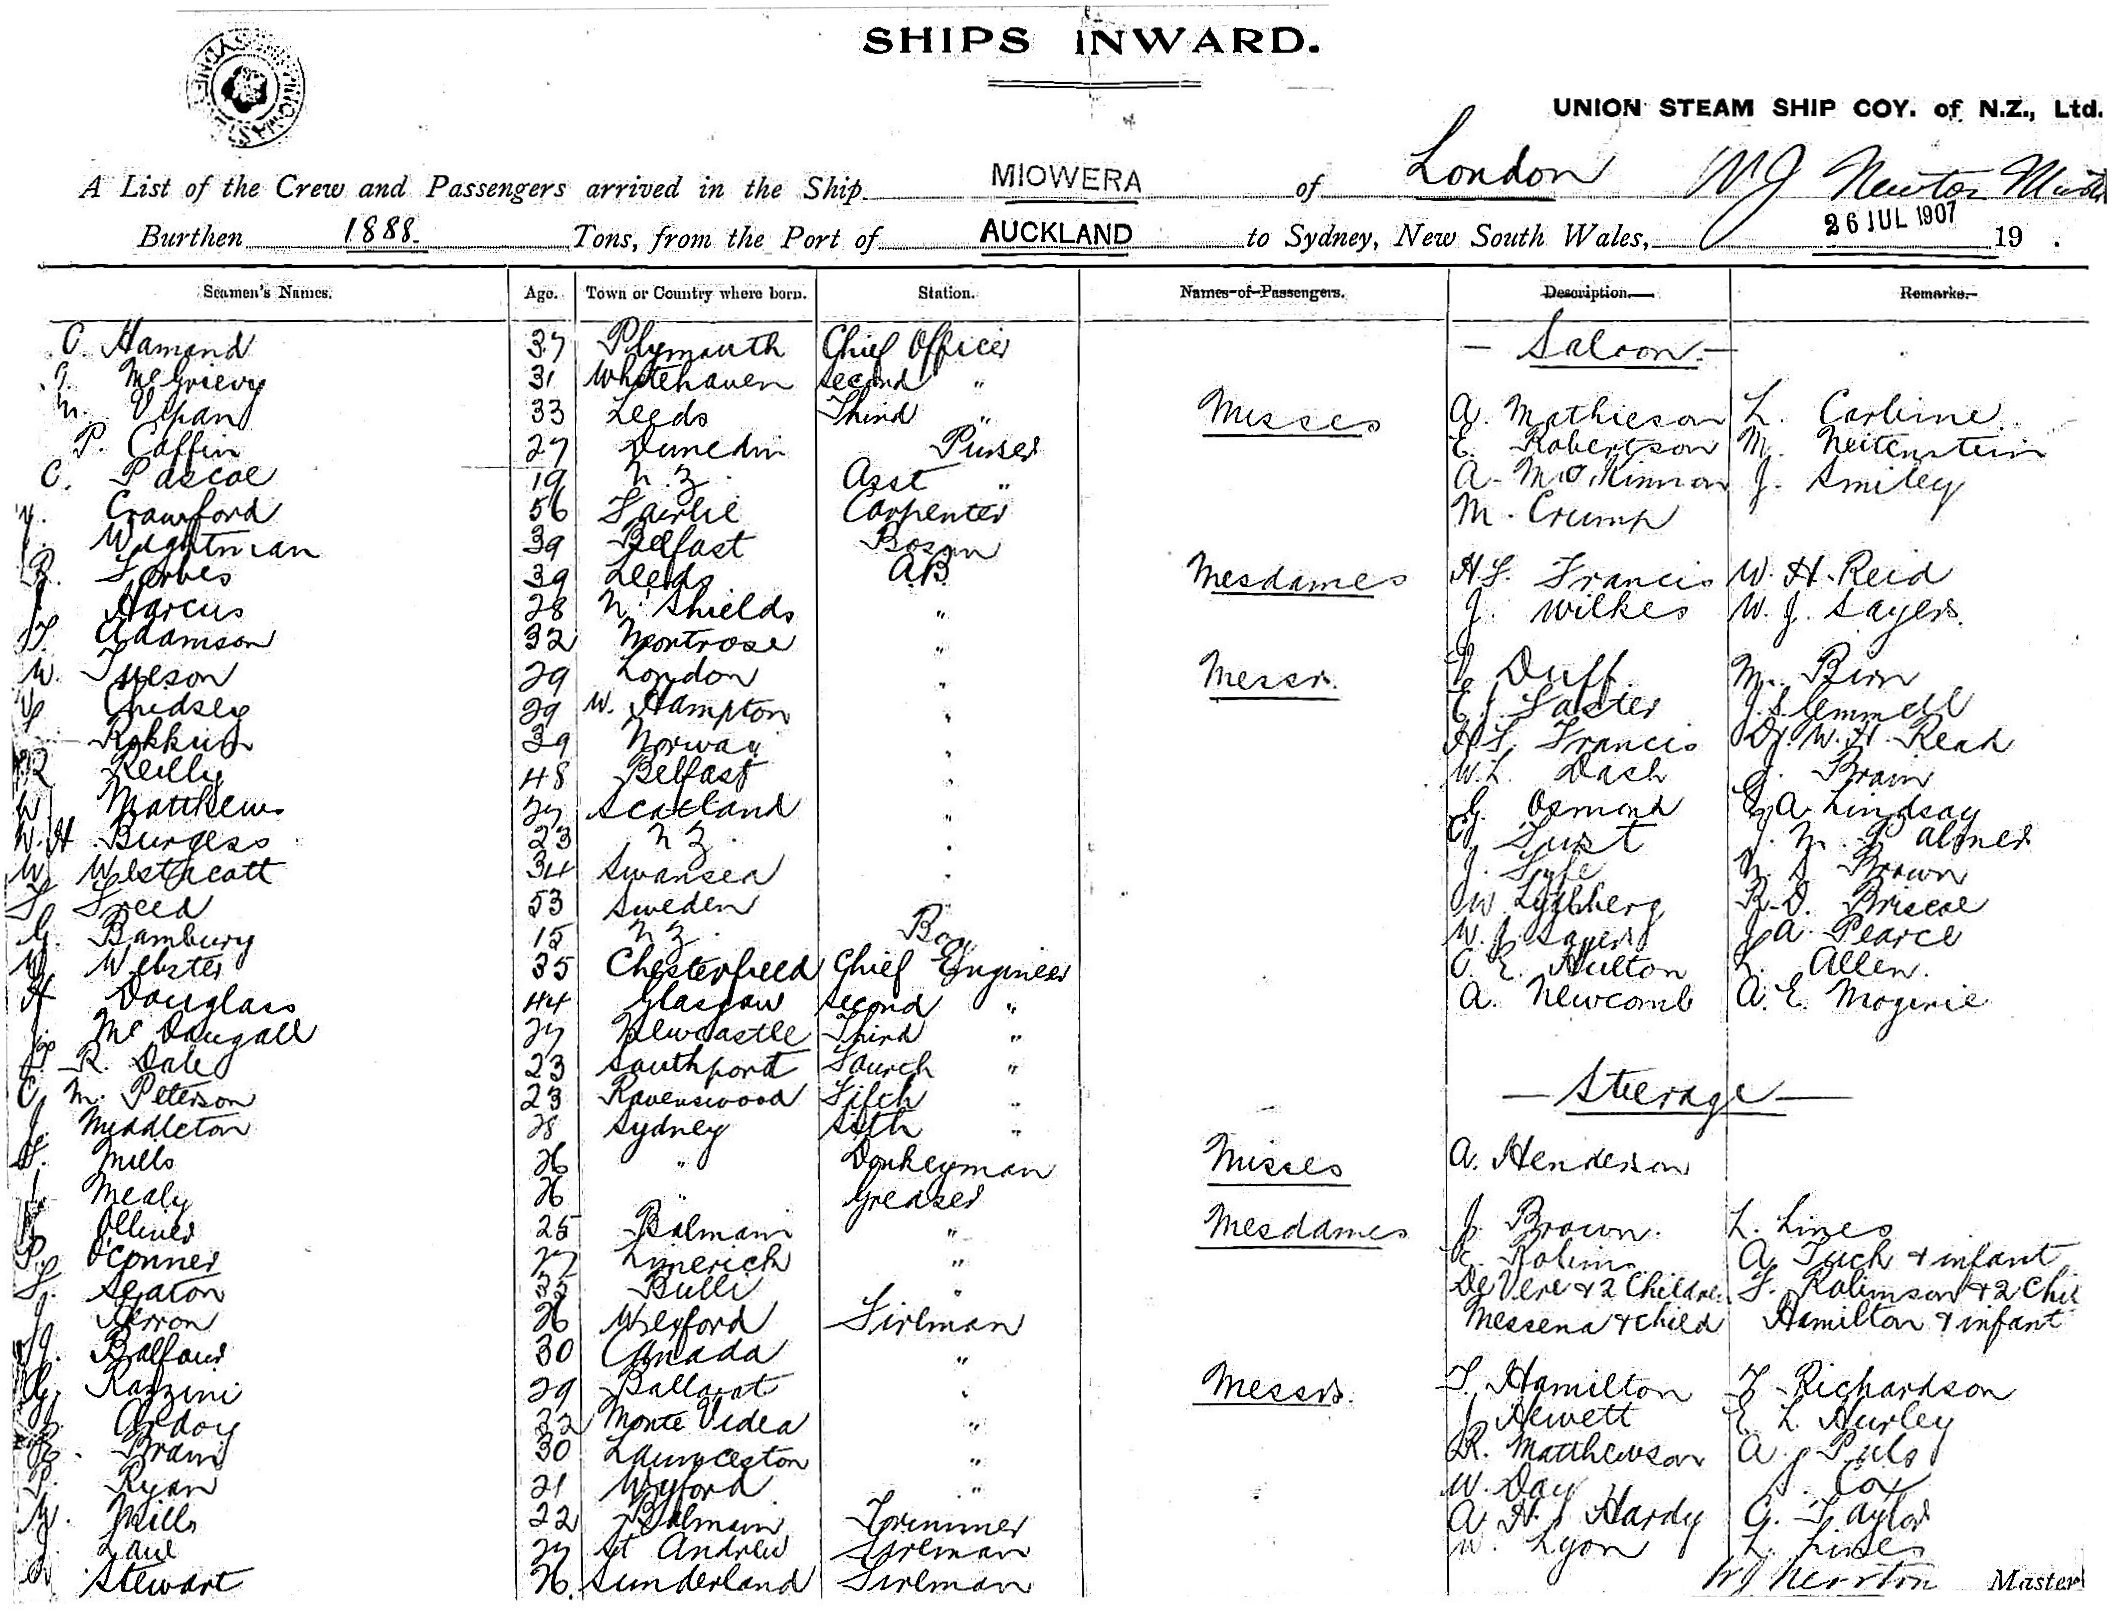 SHIPS INWARD.
UNION STEAM SHIP COY. of N.Z., Ltd.
A List of the Crew and Passengers arrived in the Ship MIOWERA of London W J Newton Master
Burthen 1888. Tons, from the Port of AUCKLAND to Sydney, New South Wales, 26 JUL 1907 19 .
Seamen's Names. Age. Town or Country where born. Station. Names of Passengers. Description. Remarks.
C. Hamond 37 Plymouth Chief Officer — Saloon. —
McGrievy 31 Whitehaven Second "
Vipan 33 Leeds Third " Misses A. Mathieson L. Carbine
P. Caffin 27 Dunedin Purser E. Robertson M. Neitenstein
C. Pascoe 19 N.Z. Asst " A. McKinnon J. Smiley
Crawford 56 Fairlie Carpenter M. Crump
Wightman 39 Belfast Bosun
Forbes 39 Leeds AB. Mesdames H F. Francis W. H. Reid
Harcus 28 N. Shields " J. Wilkes W. J. Sayers
Adamson 32 Montrose "
W. Tyeson 29 London " Messrs. Duff M. Birn
Chidsey 29 W. Hampton " Faster Clemmell
Rokkum 39 Norway " H F. Francis Dr. W. H. Read
Reilly 48 Belfast " W. L. Dash Brain
W Matthews 27 Scotland " G. Osmond A Lindsay
W. H Burgess 23 N Z. " Just J. M. Palmer
W Westacott 34 Swansea " J. Fyfe Brown
Freed 53 Sweden W Lythberg R. D. Briscoe
G. Bambury 15 N Z. Boy W. J. Sayers A. Pearce
W. Webster 35 Chesterfield Chief Engineer C. E. Hulton Allen.
H Douglass 44 Glasgow Second " A. Newcomb A. E. Moginie
J. McDougall 27 Newcastle Third "
R. Dale 23 Southport Fourth "
C. M. Peterson 23 Ravenswood Fifth " — Steerage —
J. Middleton 28 Sydney Sixth "
Mills 26 " Donkeyman Misses A. Henderson
Mealy 26 " Greaser
Olliver 25 Balmain " Mesdames J. Brown. L. Lines
P. O'Conner 27 Limerick " A. Tuck & infant
Seaton 35 Bulli " De Vere & 2 Children F. Robinson & 2 Chil
Kerron 26 Wexford Fireman Messena & child Hamilton & infant
Balfour 30 Canada "
G. Razzini 29 Ballarat " Messrs. T. Hamilton Richardson
Ardoy 32 Monte Videa " J. Hewett E. L. Hurley
Brain 30 Launceston " R. Matthewson A. Puls
P. Ryan 21 Wexford " W. Day Cox
W. Mills 22 Balmain Trimmer A. H. Hardy G. Taylor
J. Law 27 St Andrew Fireman W. Lyon L. Lines
Stewart 26. Sunderland Fireman W J Newton Master